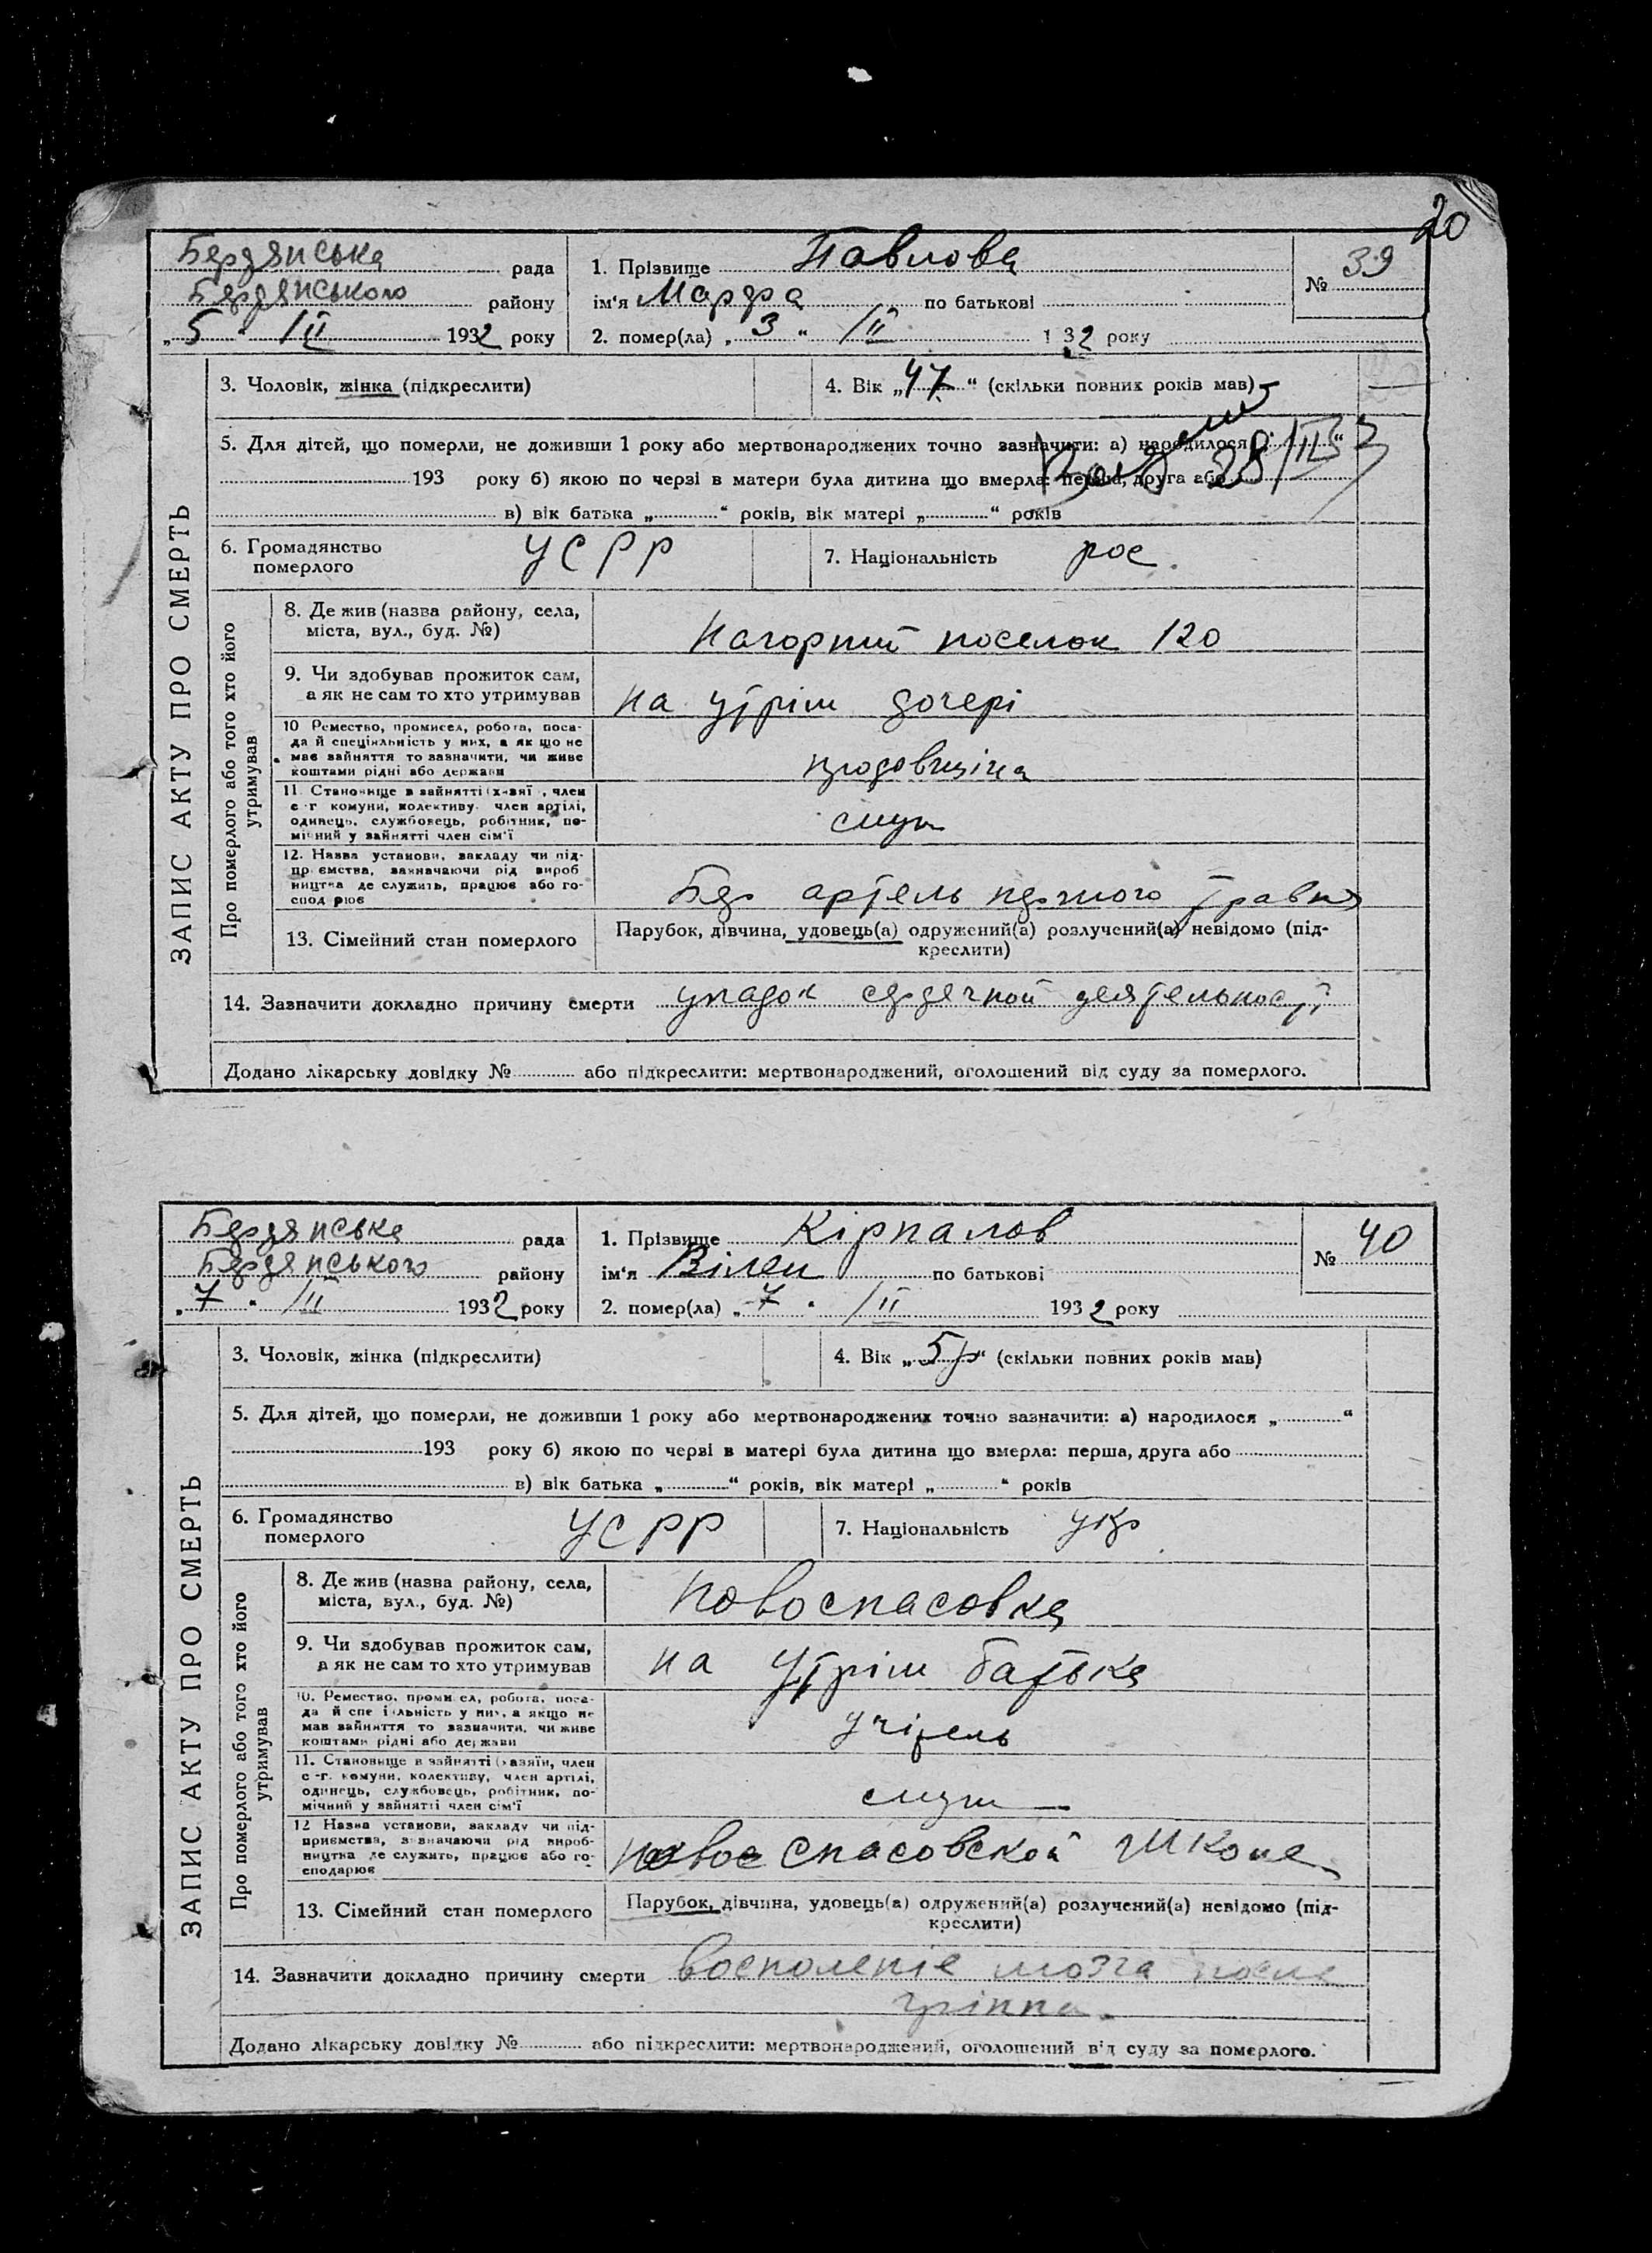 20
Бердянська рада
Бердянського району
„5“ /II 1932 року
1. Прізвище Павлова
ім'я Марфа по батькові
2. помер(ла) „3“ /II 132 року
№ 39
ЗАПИС АКТУ ПРО СМЕРТЬ
3. Чоловік, жінка (підкреслити)
4. Вік „47“ (скільки повних років мав)
5. Для дітей, що померли, не доживши 1 року або мертвонароджених точно зазначити: а) народилося „
193 року б) якою по черзі в матери була дитина що вмерла: перша, друга або
28/II
в) вік батька „ “ років, вік матері „ “ років
6. Громадянство
померлого
УСРР
7. Національність рос.
Про померлого або того хто його
утримував
8. Де жив (назва району, села,
міста, вул., буд. №)
Нагорний поселок 120
9. Чи здобував прожиток сам,
а як не сам то хто утримував
на утрім дочері
10 Ремество, промисел, робота, поса-
да й спеціяльність у них, а як що не
має зайняття то зазначити, чи живе
коштами рідні або держави
продовщіца
11. Становище в зайнятті (х-зяї , член
с -г комуни, колективу, член артілі,
одинець, службовець, робітник, по-
мічний у зайнятті член сім'ї
служ
12. Назва установи, закладу чи під-
пр ємства, зазначаючи рід вироб
ництва де служить, працює або го-
спод рює
Бер артель першого травня
13. Сімейний стан померлого
Парубок, дівчина, удовець(а) одружений(а) розлучений(а) невідомо (під-
креслити)
14. Зазначити докладно причину смерти упадок сердечной деятельності
Додано лікарську довідку № або підкреслити: мертвонароджений, оголошений від суду за померлого.
Бердянська рада
Бердянського району
„7“ /II 1932 року
1. Прізвище Кірпалов
ім'я Вілен по батькові
2. помер(ла) „7“ /II 1932 року
№ 40
ЗАПИС АКТУ ПРО СМЕРТЬ
3. Чоловік, жінка (підкреслити)
4. Вік „5р“ (скільки повних років мав)
5. Для дітей, що померли, не доживши 1 року або мертвонароджених точно зазначити: а) народилося „ “
193 року б) якою по черзі в матері була дитина що вмерла: перша, друга або
в) вік батька „ “ років, вік матері „ “ років
6. Громадянство
померлого
УСРР
7. Національність укр
Про померлого або того хто його
утримував
8. Де жив (назва району, села,
міста, вул., буд. №)
Новоспасовка
9. Чи здобував прожиток сам,
а як не сам то хто утримував
на утрім батька
10. Ремество, проми ел, робота, поса-
да й спе іяльність у них, а якщо не
має зайняття то зазначити, чи живе
коштами рідні або держави
учітель
11. Становище в зайнятті (хазяїн, член
с -г. комуни, колективу, член артілі,
одинець, службовець, робітник, по-
мічний у зайнятті член сім'ї
служ
12 Назва установи, закладу чи під-
приємства, зазначаючи рід вироб-
ництва де служить, працює або го-
сподарює
Новос спасовской Школе
13. Сімейний стан померлого
Парубок, дівчина, удовець(а) одружений(а) розлучений(а) невідомо (під-
креслити)
14. Зазначити докладно причину смерти восполеніе мозга после
гріппа.
Додано лікарську довідку № або підкреслити: мертвонароджений, оголошений від суду за померлого.